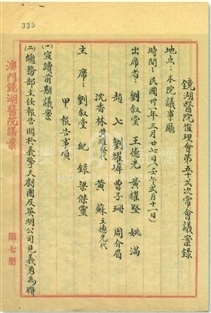 335
鏡湖醫院值理會第五十次常會議案錄
地點：本院議事廳
時間：民國卅一年三月廿七日（壬午二月十一日）
出席者：劉敘堂 王德光 黃耀堅 姚滿
趙七 劉耀墀 曹子珊 周介眉
沈香林 黃蘇
主席：劉敘堂 紀錄 梁傑靈
甲 報告事項
（一）宣讀前期議案
（二）總務部主任報告關於義擎天劇團及英明公司見義勇為
澳門鏡湖醫院議案
第七冊